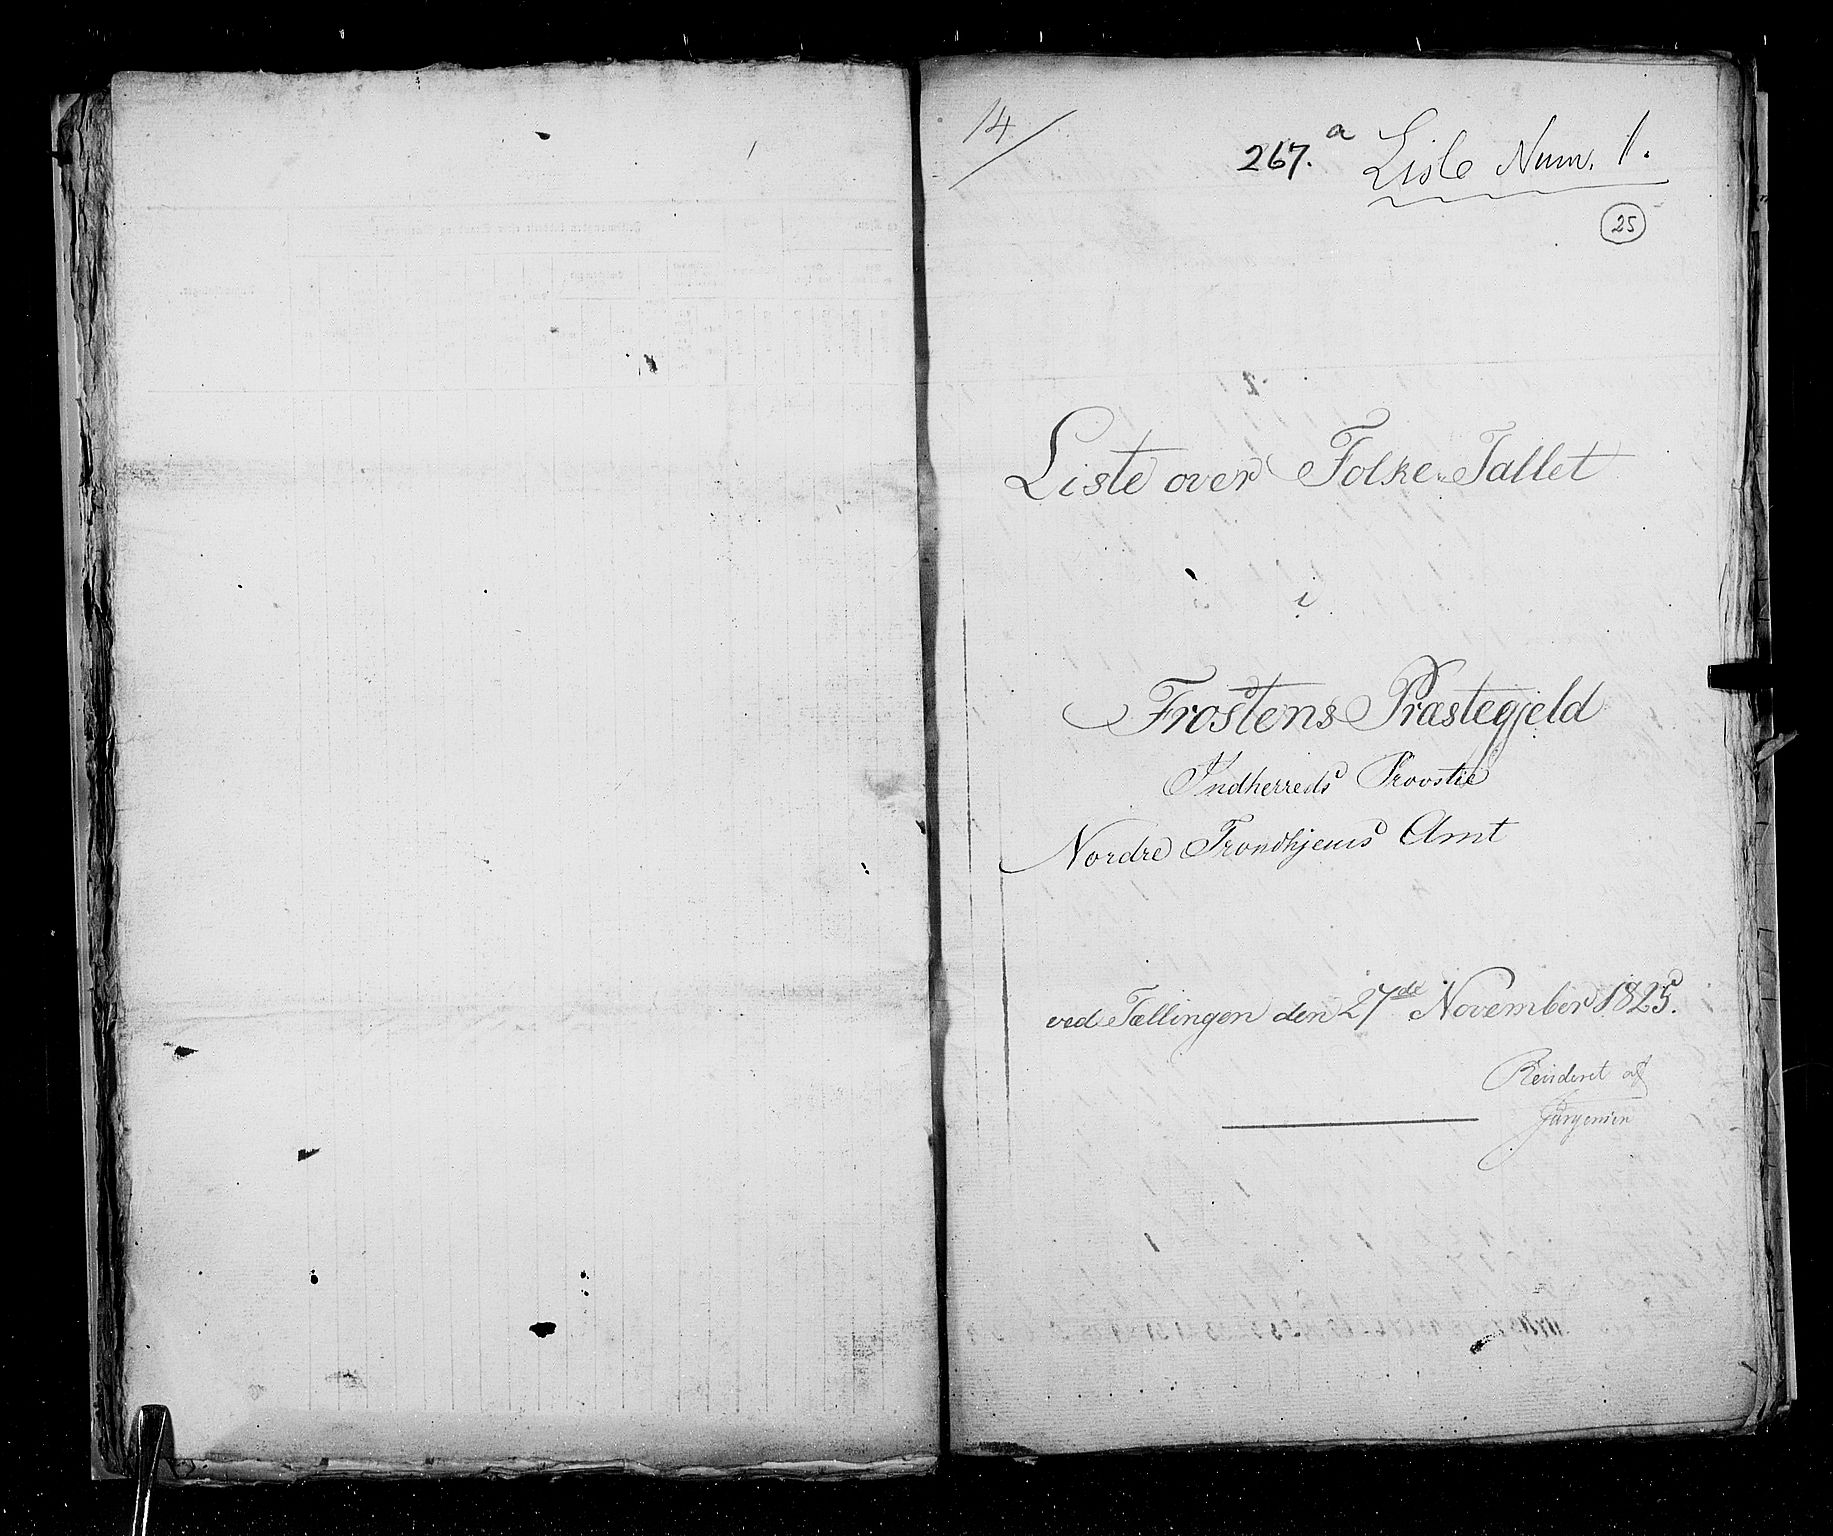 14/
267.a Liste Num. 1.
25
Liste over Folke-Tallet
i
Frostens Præstegjeld
Indherreds Provstie
Nordre Trondhjems Amt
ved Tællingen den 27de November 1825.
Revideret af
Jürgensen